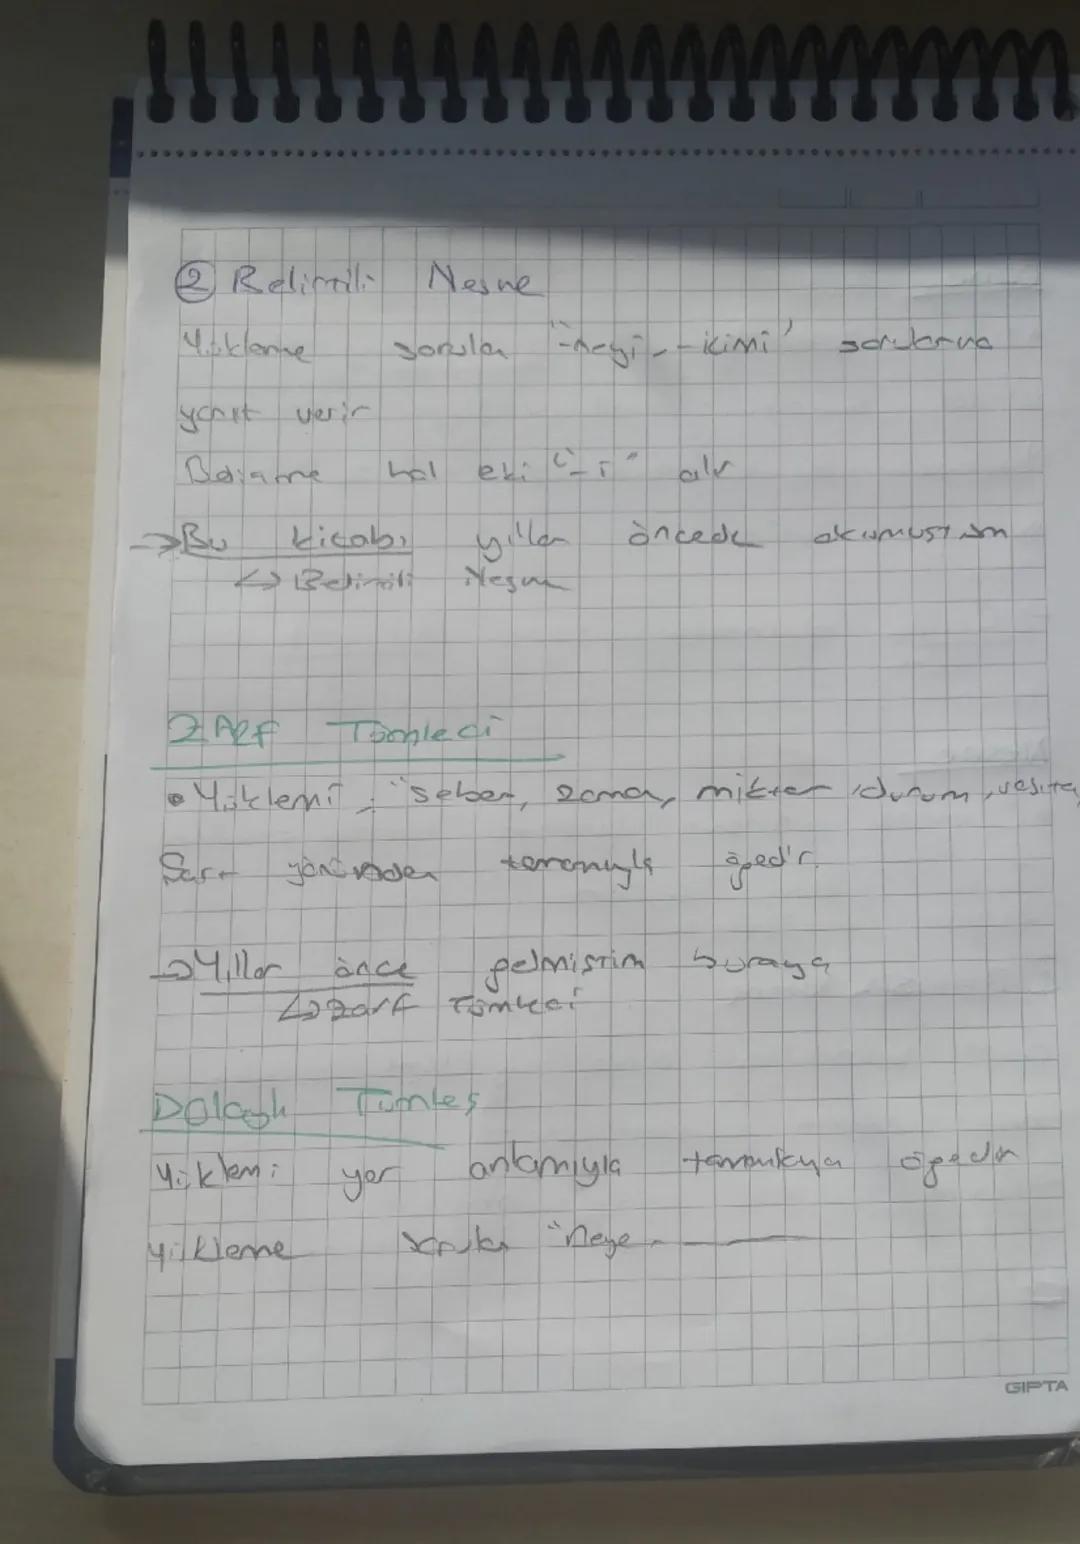 ② Belirtili Nesne
Yükleme sorulan "-neyi, -kimi" sorularına
yanıt verir
Belirtme hal eki "-i" alır
→ Bu kitabı yıllar önceden okumuştum
↳ Belirtili Nesne
Zarf Tümleci
• Yüklemi, "sebep, zaman, miktar, durum, vasıta,
Şart yönünden tamamlayan ögedir.
→ Yıllar önce gelmiştim buraya
↳ Zarf Tümleci
Dolaylı Tümleç
Yüklemi yer anlamıyla tamamlayan ögedir
Yükleme "neye
GIPTA